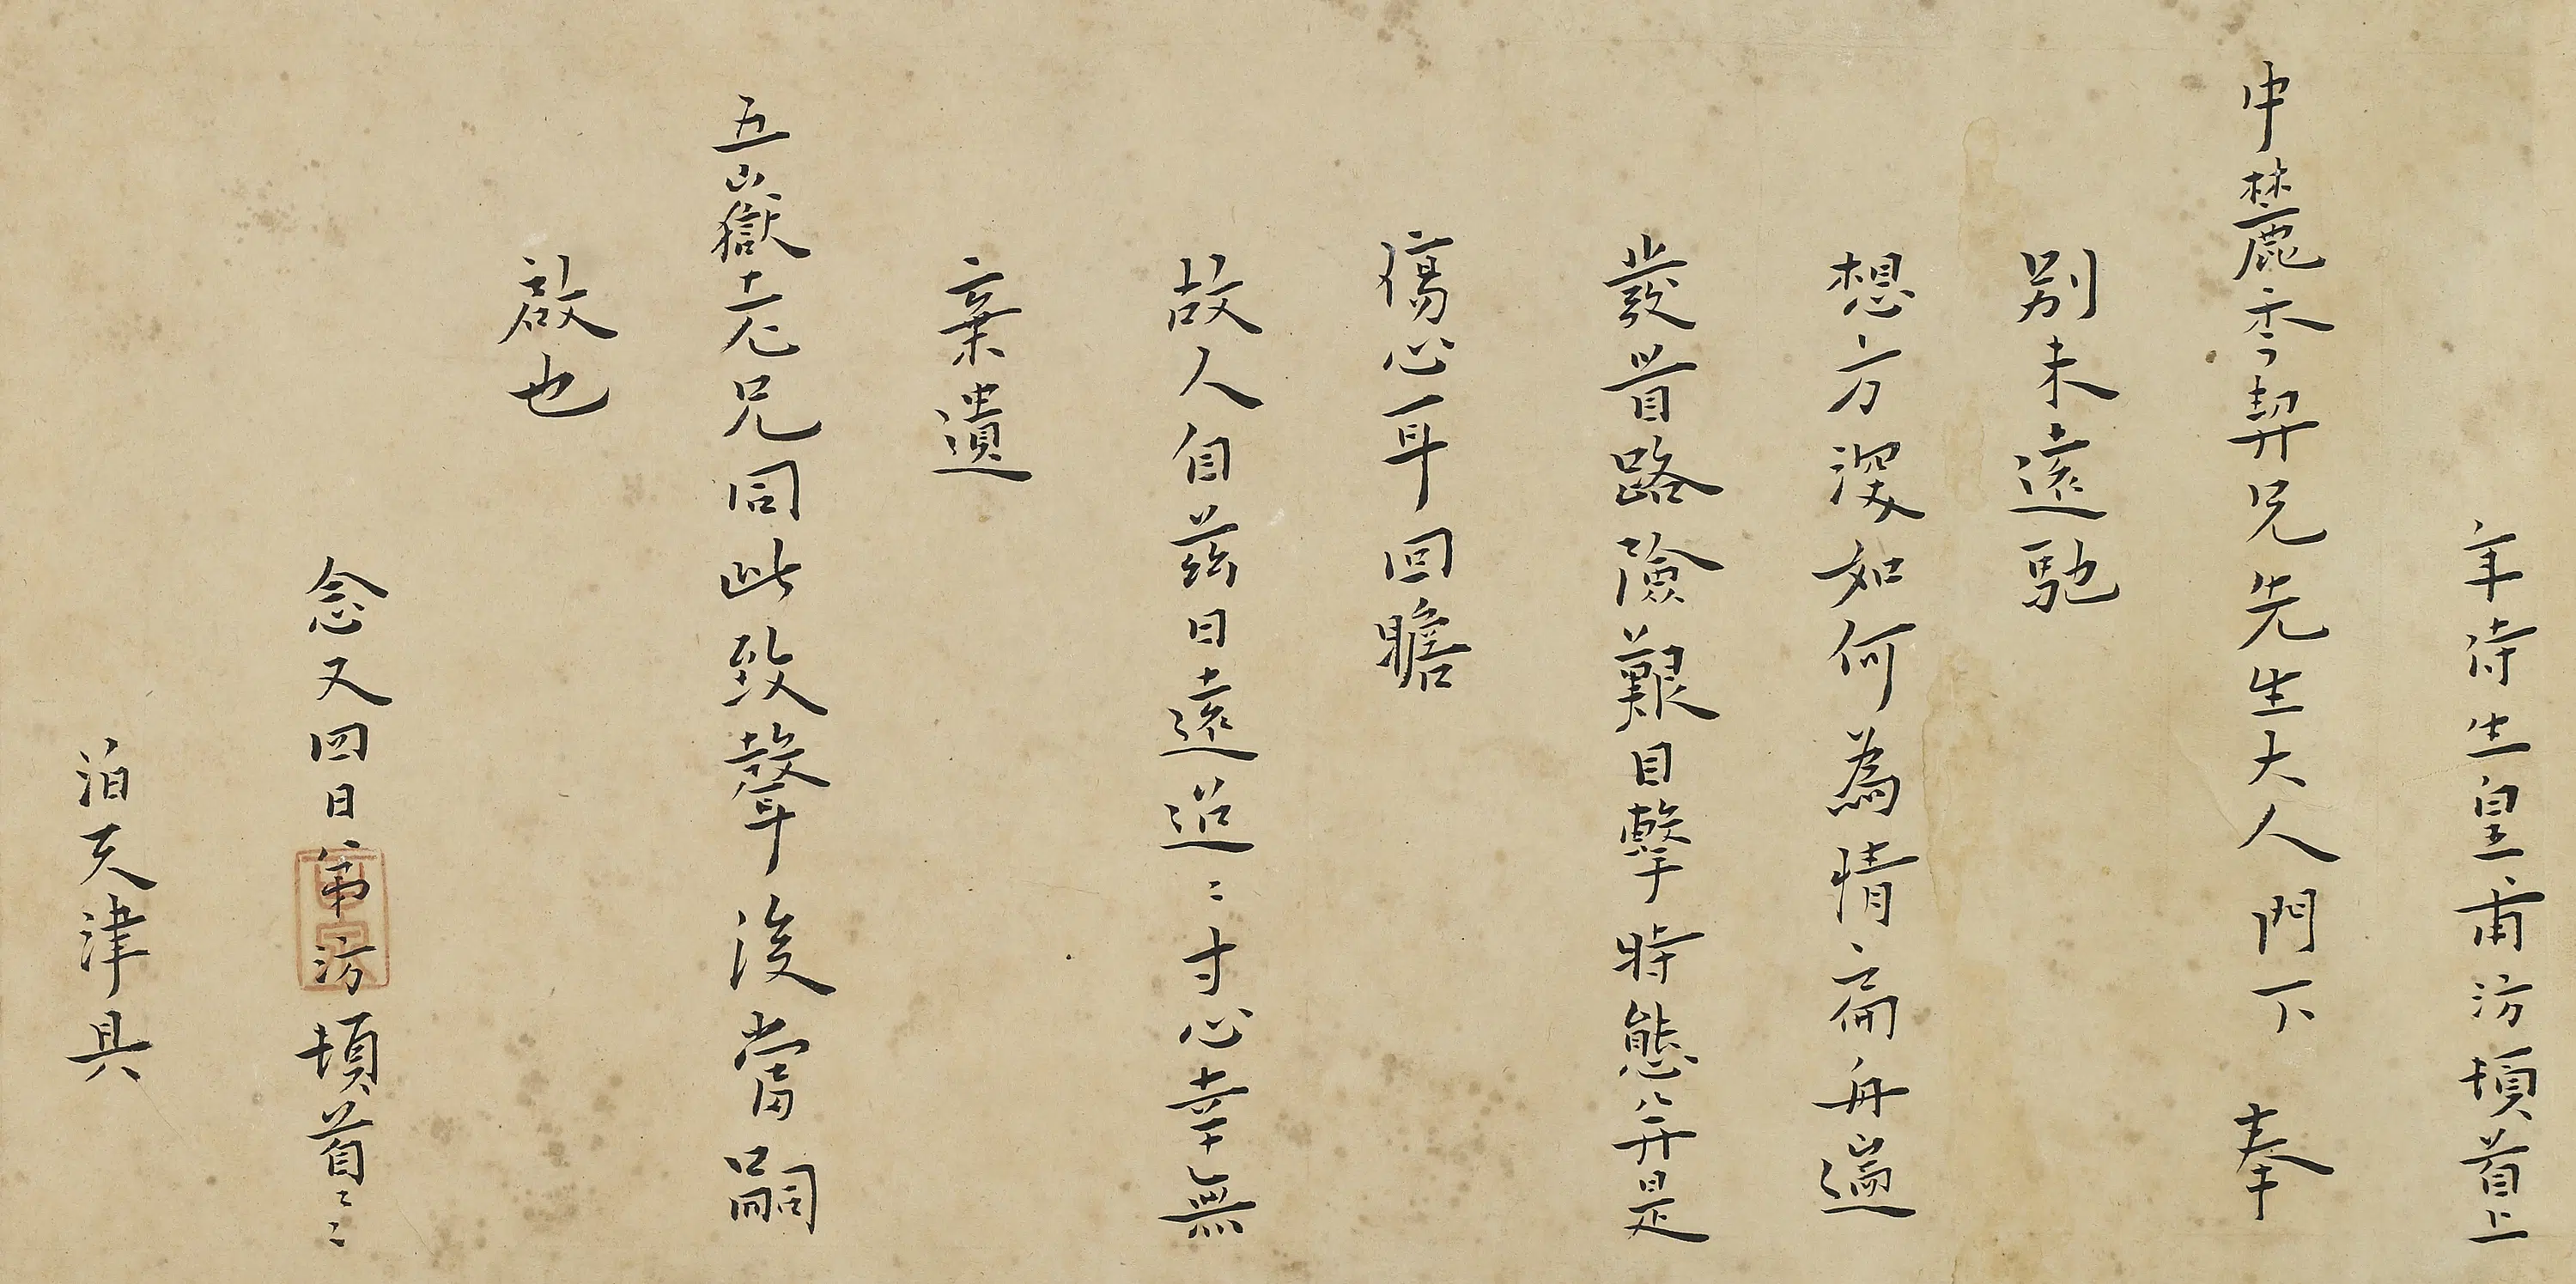 年侍生皇甫汸頓首上
中麓季契兄先生大人門下 奉
別未遠馳
想方深如何為情扁舟遄
發首路險艱目擊時態并是
傷心耳回瞻
故人自茲日遠迢〻寸心幸無
棄遺
五嶽老兄同此致聲後當嗣
啟也
念又四日弟汸頓首〻〻
泊天津具